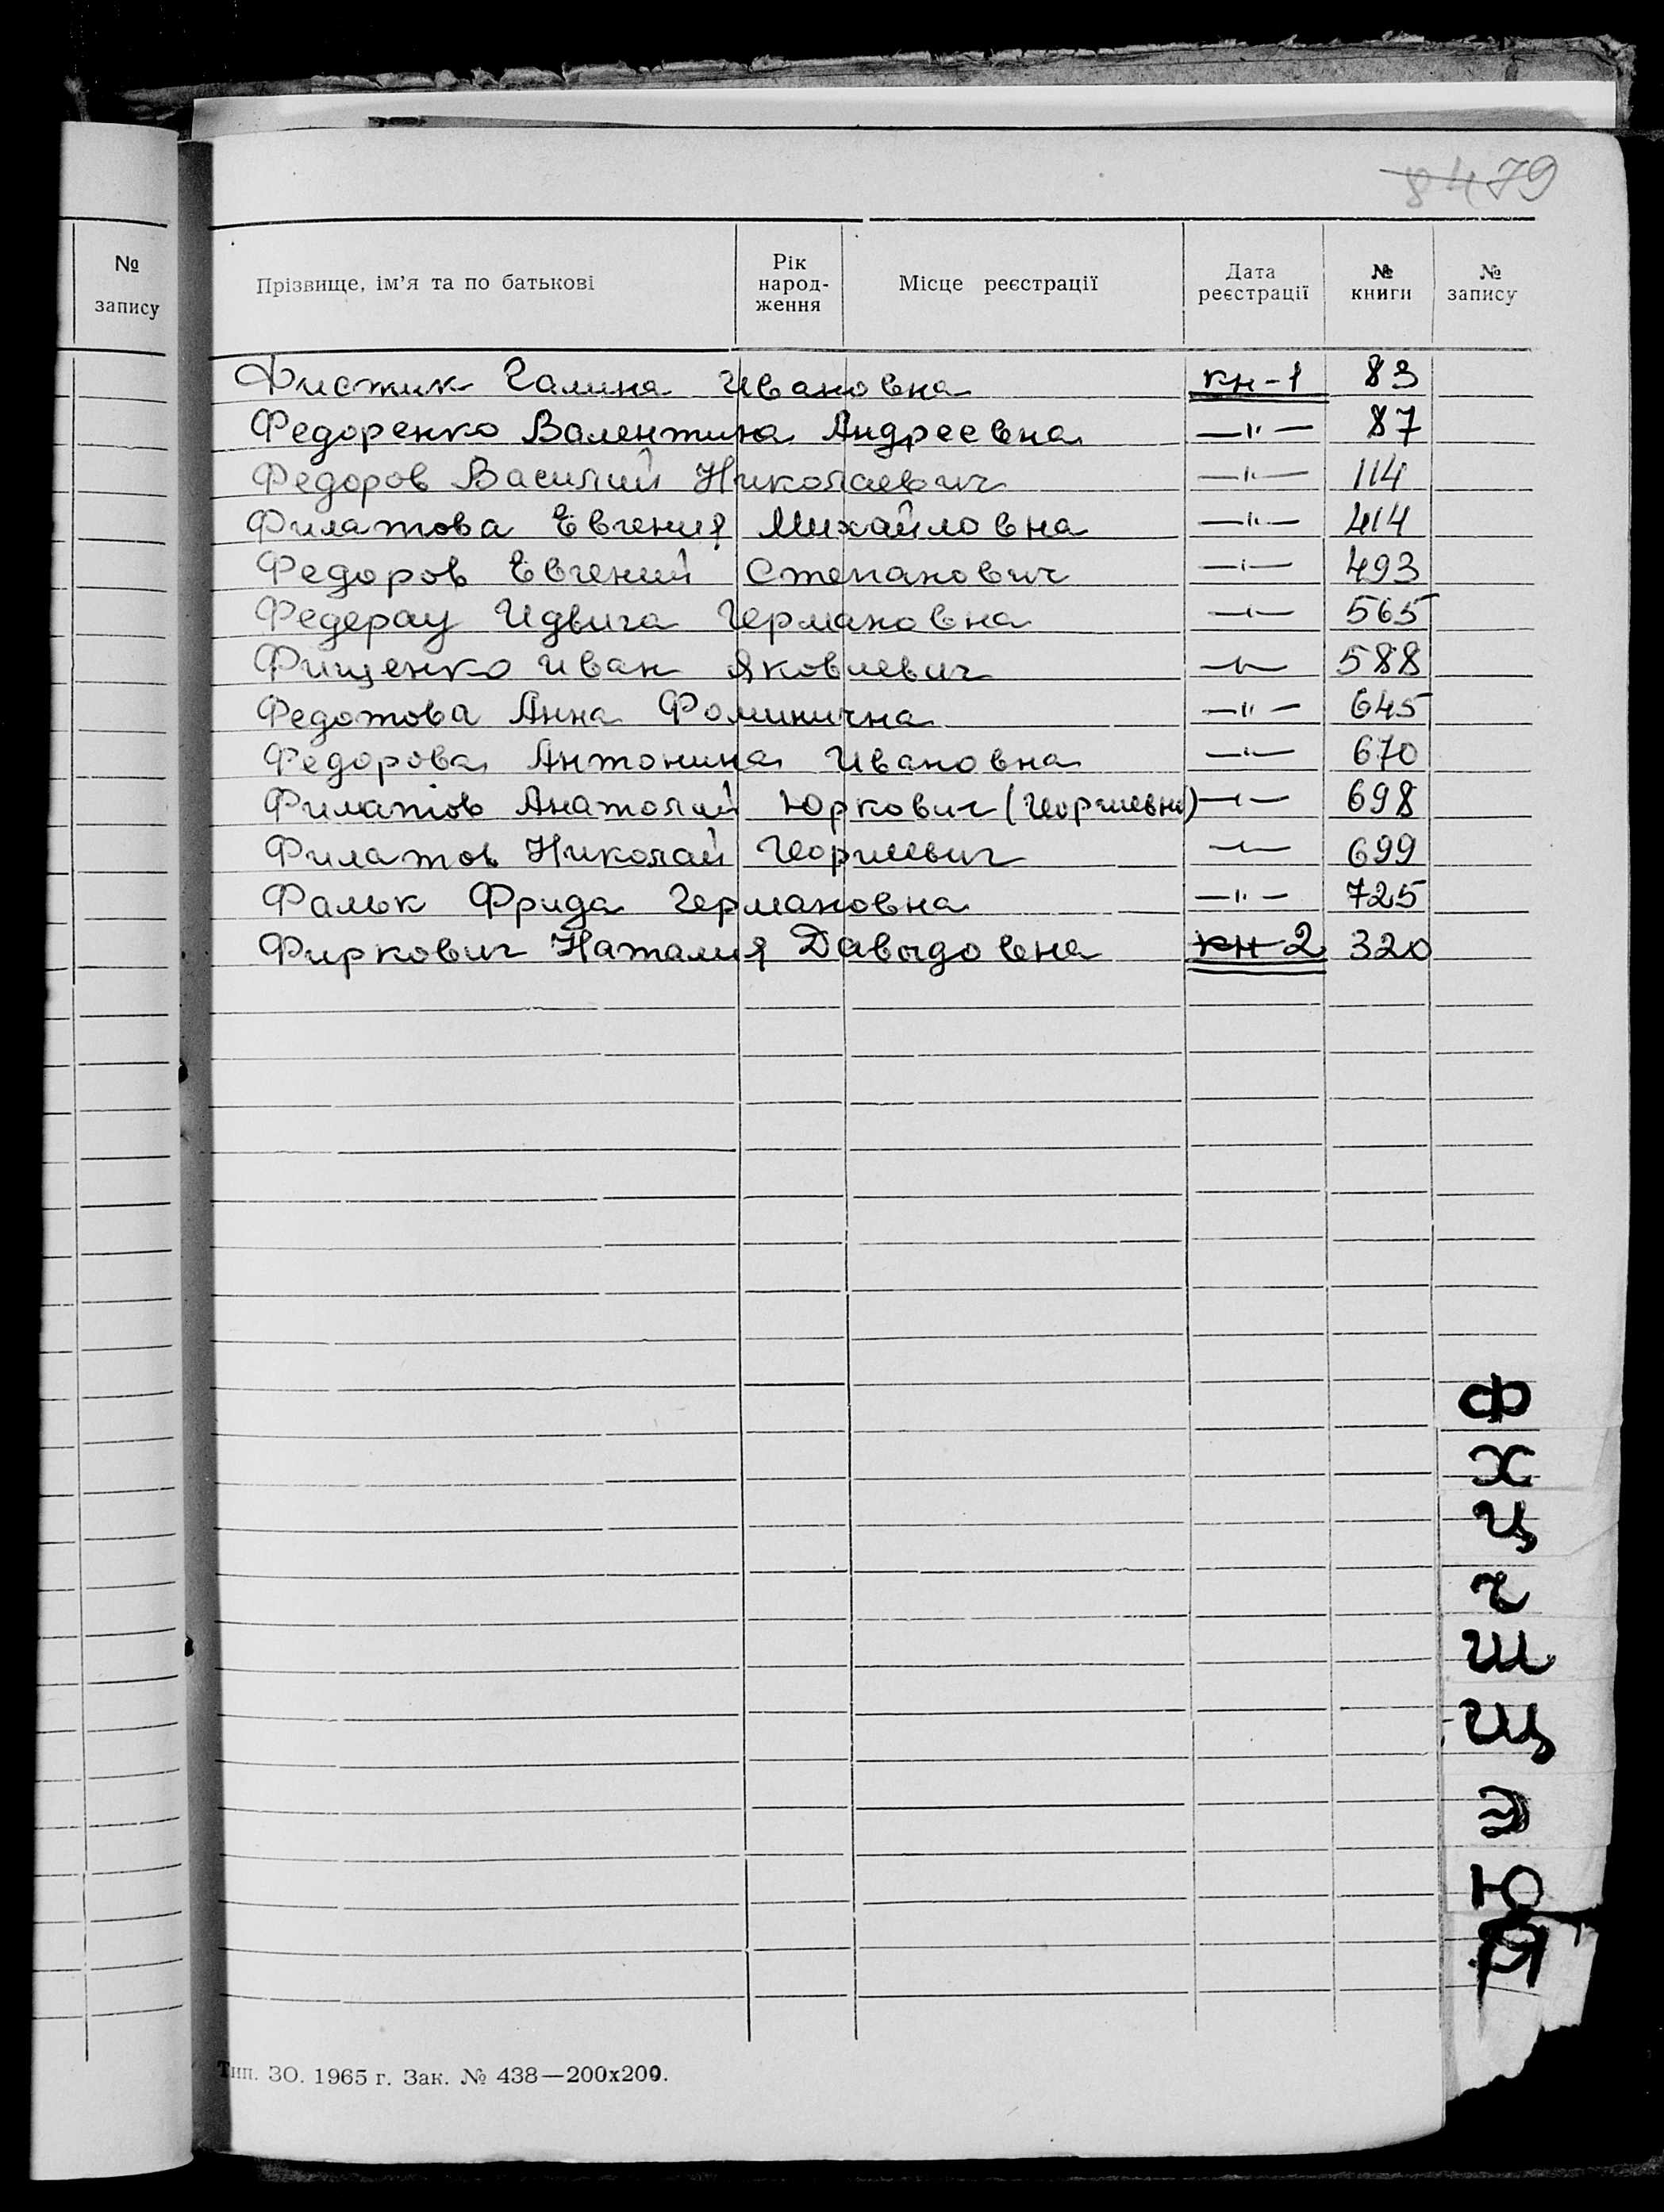 8479
№ запису
Прізвище, ім'я та по батькові Рік народ- ження Місце реєстрації Дата реєстрації № книги № запису
Фистик Галина Ивановна кн-1 83
Федоренко Валентина Андреевна —"— 87
Федоров Василий Николаевич —"— 114
Филатова Евгения Михайловна —"— 414
Федоров Евгений Степанович —"— 493
Федерау Идвига Германовна —"— 565
Фищенко Иван Яковлевич —"— 588
Федотова Анна Фоминична —"— 645
Федорова Антонина Ивановна —"— 670
Филатов Анатолий Юркович (Георгиевич) —"— 698
Филатов Николай Георгиевич —"— 699
Фальк Фрида Германовна —"— 725
Фиркович Наталия Давыдовна кн-2 320
Ф
Х
Ц
Ч
Ш
Щ
Э
Ю
Я
Тип. ЗО. 1965 г. Зак. № 438—200х200.